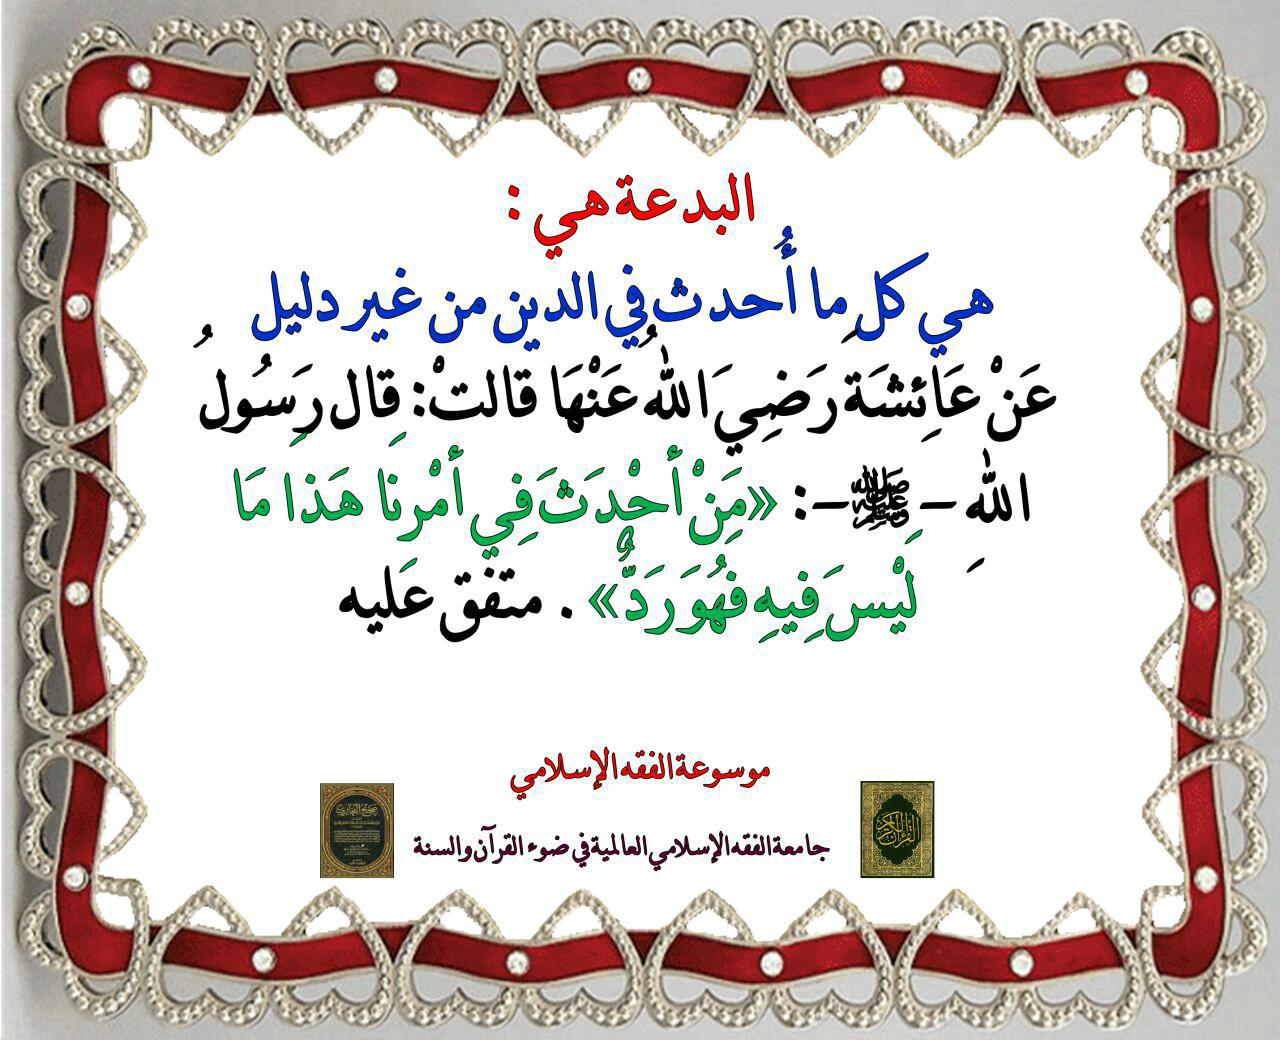 البدعة هي :
هي كل ما أُحدث في الدين من غير دليل
عَنْ عَائِشَةَ رَضِيَ اللهُ عَنْهَا قَالتْ: قَال رَسُولُ
اللهِ – ﷺ –: «مَنْ أَحْدَثَ فِي أَمْرِنَا هَذا مَا
لَيْسَ فِيهِ فَهُوَ رَدٌّ» . متفق عَليه
موسوعة الفقه الإسلامي
جامعة الفقه الإسلامي العالمية في ضوء القرآن والسنة
صحيح البخاري
القرآن الكريم